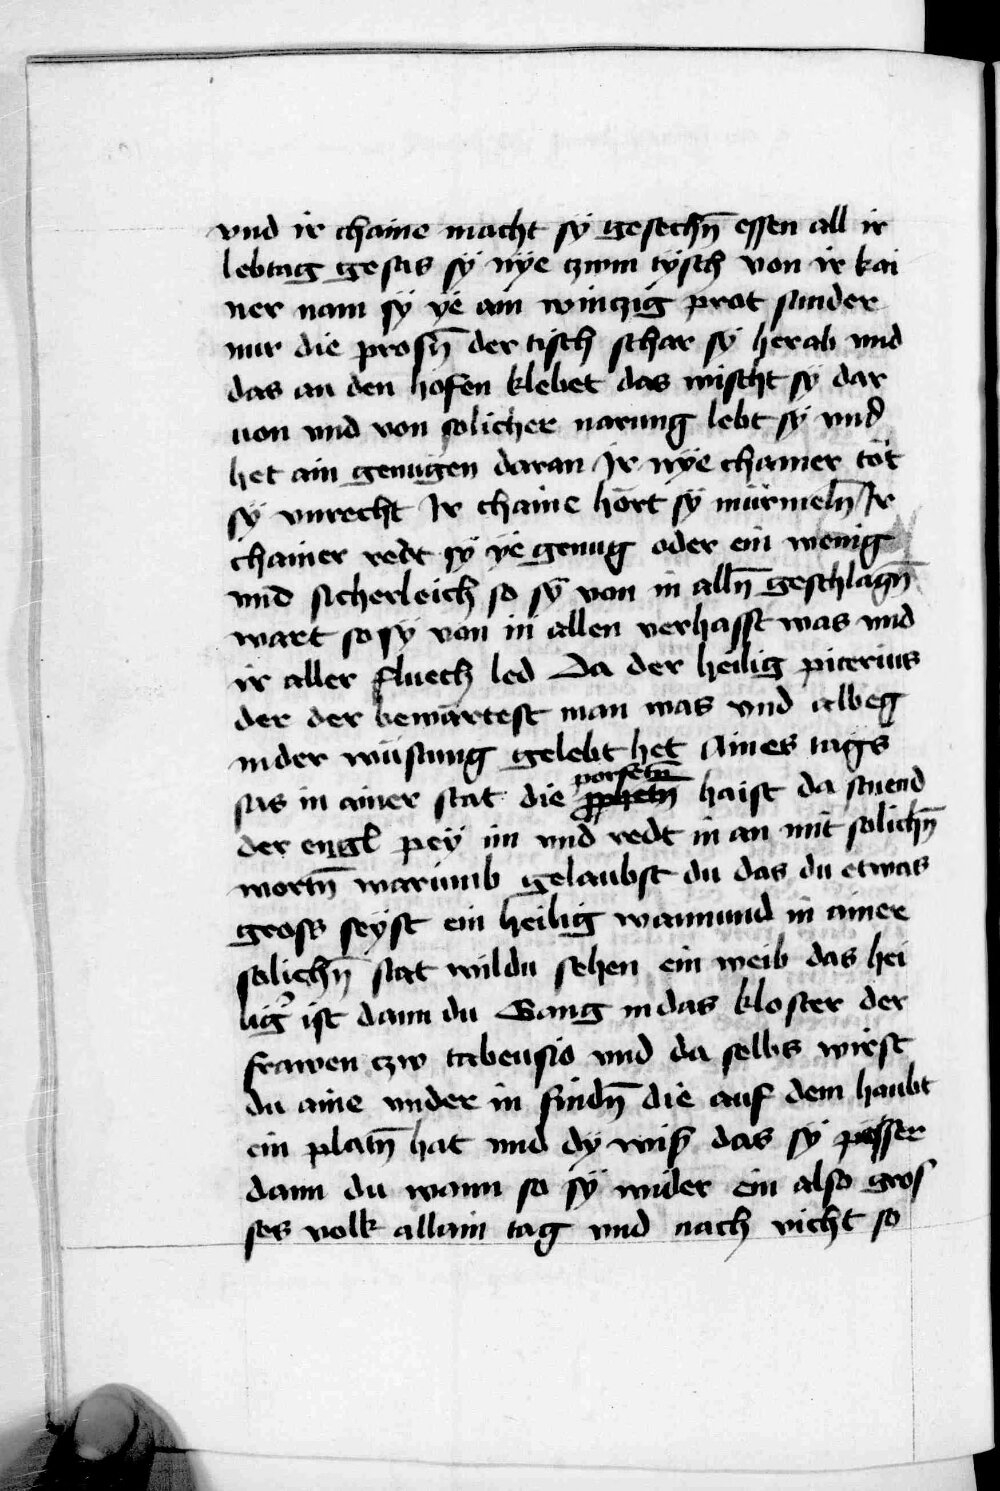 vnd ir chaine macht sÿ gesechn̄ essen all ir
lebtag gesas sÿ nÿe czwm tÿsch von ir kai
ner nam sÿ ÿe ain winczig prot sunder
nur die prosn̄ der tisch schar sÿ herab vnd
das an den höfen klebet das wischt sÿ dar
uon vnd von solicher narung lebt sÿ vnd
het ain genugen daran Ir nÿe chainer töt
sÿ vnrecht Ir chaine hort sÿ mürmeln̄ Ir
chainer redt sÿ ÿe genug oder ein wenig
vnd sicherleich so sÿ von in alln̄ geschlagn̄
wart so sÿ von in allen verhasst was vnd
ir aller fluech led Da der heilig piterius
der der bewärtest man was vnd albeg
in der wüstung gelebt het Aines tags
sas in ainer stat die porfetn̄ haist da stuend
der engl pey im vnd redt in an mit solichn̄
wortn̄ warumb gelaubst du das du etwas
gross seÿst ein heilig wann und in ainer
solichn̄ stat wildu sehen ein weib das hei
liger ist dann du Gang in das kloster der
frawen czw tabensio vnd da selbs wirst
du aine vnder in findn̄ die auf dem haubt
ein platn̄ hat vnd dÿ wiss das sÿ pesser
dann du wann so sÿ wider ein also gros
ses volk allain tag vnd nach vicht so